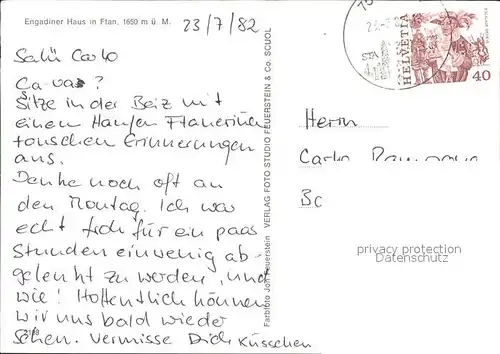 Engadiner Haus in Ftan, 1650 m ü. M.
23/7/82
Salü Carlo
Ca va?
Sitze in der Beiz mit
einem Haufen Ftanerinnen
tauschen Erinnerungen
aus.
Denke noch oft an
den Montag. Ich war
echt froh für ein paar
Stunden einwenig ab-
gelenkt zu werden, und
wie! Hoffentlich können
wir uns bald wieder
sehen. Vermisse Dich Küsschen
2198
Farbfoto Jon Feuerstein VERLAG FOTO STUDIO FEUERSTEIN & Co. SCUOL
HELVETIA
40
Herrn
Carlo
privacy protection
Datenschutz